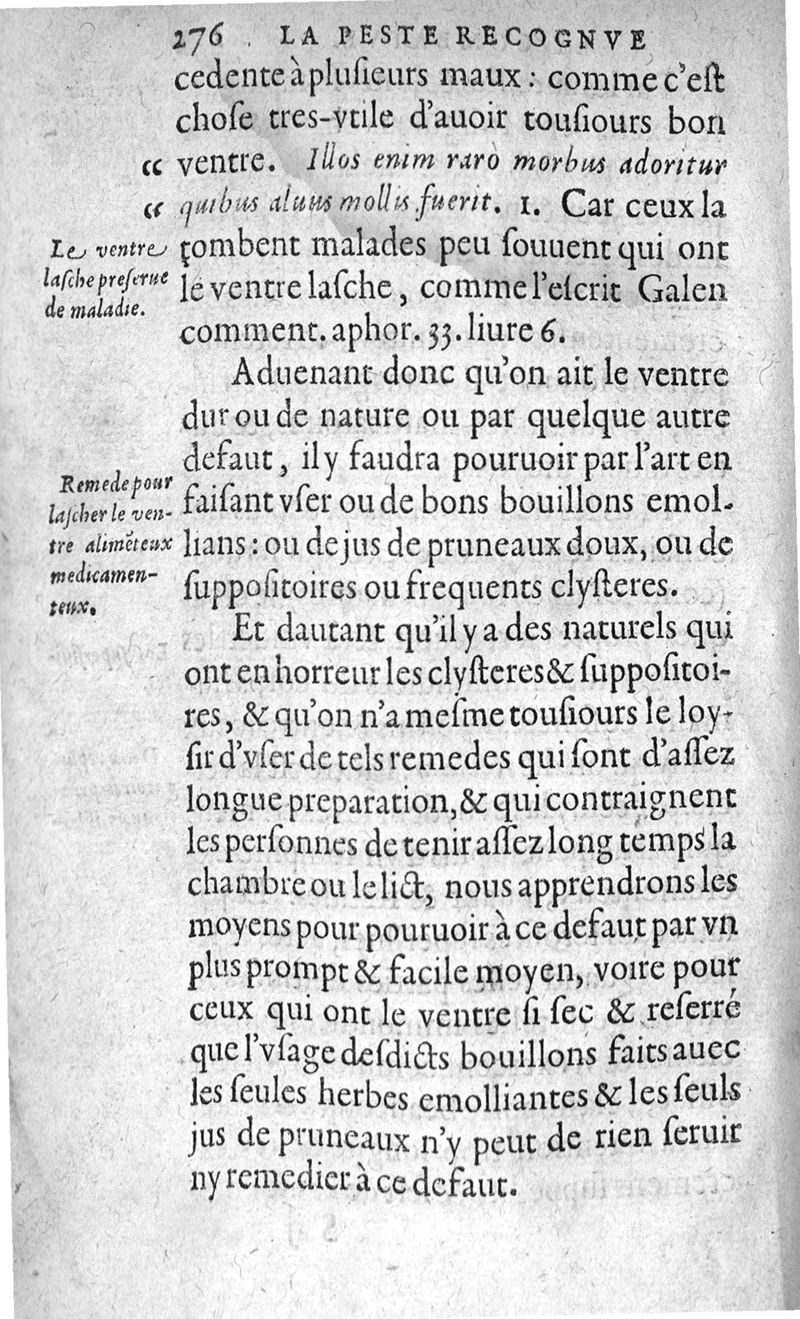 276 LA PESTE RECOGNVE
cedente à pluſieurs maux : comme c'eſt
choſe tres-vtile d'auoir touſiours bon
“ ventre. Illos enim rarò morbus adoritur
“ quibus aluus mollis fuerit. 1. Car ceux la
tombent malades peu ſouuent qui ont
le ventre laſche, comme l'eſcrit Galen
comment. aphor. 33. liure 6.
Le ventre
laſche preſerue
de maladie.
Aduenant donc qu'on ait le ventre
dur ou de nature ou par quelque autre
defaut, il y faudra pouruoir par l'art en
faiſant vſer ou de bons bouillons emol-
lians : ou de jus de pruneaux doux, ou de
ſuppoſitoires ou frequents clyſteres.
Remede pour
laſcher le ven-
tre alimẽteux
medicamen-
teux.
Et dautant qu'il y a des naturels qui
ont en horreur les clyſteres & ſuppoſitoi-
res, & qu'on n'a meſme touſiours le loy-
ſir d'vſer de tels remedes qui ſont d'aſſez
longue preparation, & qui contraignent
les perſonnes de tenir aſſez long temps la
chambre ou le lict, nous apprendrons les
moyens pour pouruoir à ce defaut par vn
plus prompt & facile moyen, voire pour
ceux qui ont le ventre ſi ſec & reſerré
que l'vſage deſdicts bouillons faits auec
les ſeules herbes emolliantes & les ſeuls
jus de pruneaux n'y peut de rien ſeruir
ny remedier à ce defaut.